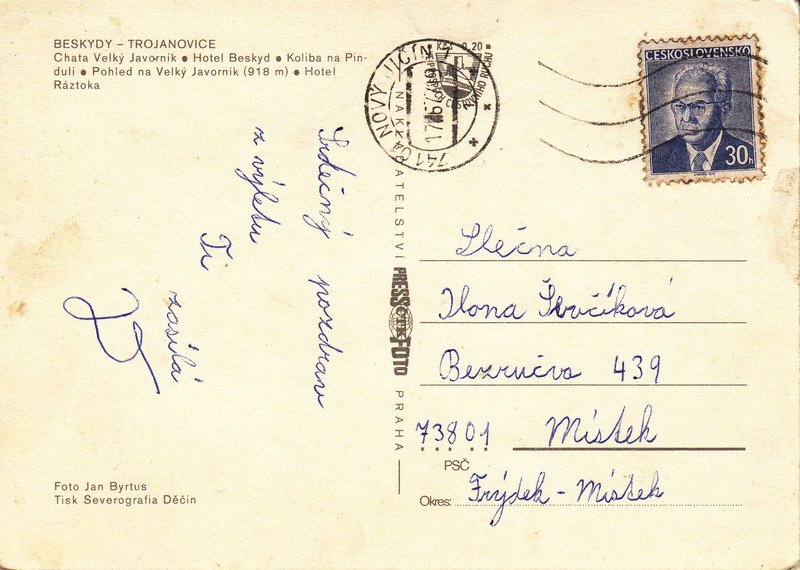 BESKYDY – TROJANOVICE
Chata Velký Javorník ● Hotel Beskyd ● Koliba na Pin-
duli ● Pohled na Velký Javorník (918 m) ● Hotel
Ráztoka
Srdečný pozdrav
z výletu
Ti zasílá
Foto Jan Byrtus
Tisk Severografia Děčín
NAKLADATELSTVÍ PRESSFOTO PRAHA
Kčs 0,20
741 01 NOVÝ JIČÍN 1
ČESKOSLOVENSKO
30h
Slečna
Ilona Ševčíková
Bezručova 439
73801 Místek
PSČ
Okres: Frýdek - Místek